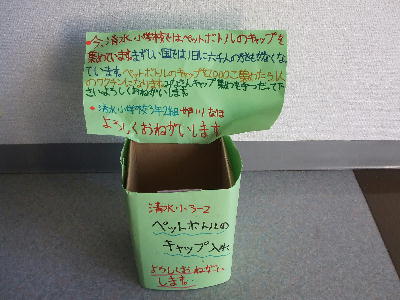 今、清水小学校ではペットボトルのキャップを
集めています。まずしい国では1日に六千人の
ています。ペットボトルのキャップ2000こ集めたら1人
のワクチンになります。みなさんキャップ集めを手つだって下
さいよろしくおねがいします。
清水小学校3年2組 川
よろしくおねがいします
清水小3-2
ペットボトルの
キャップ入れ
よろしくおねがい
します。